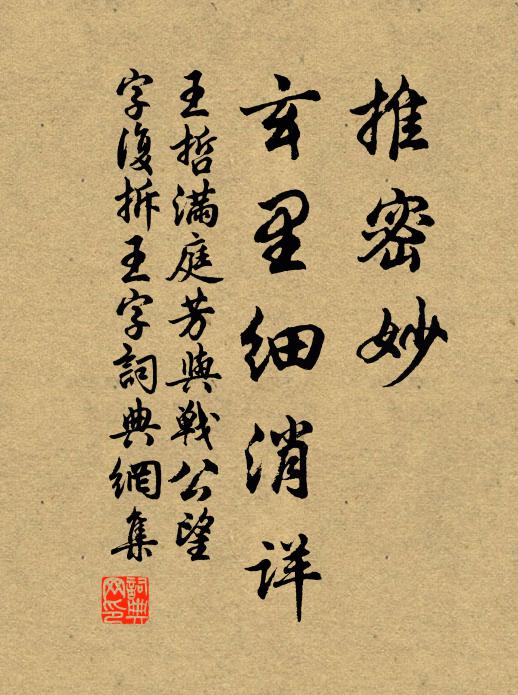 推密妙
玄里细消详
王哲满庭芳與戦公望
字復拆王字詞典網集
詞典网印